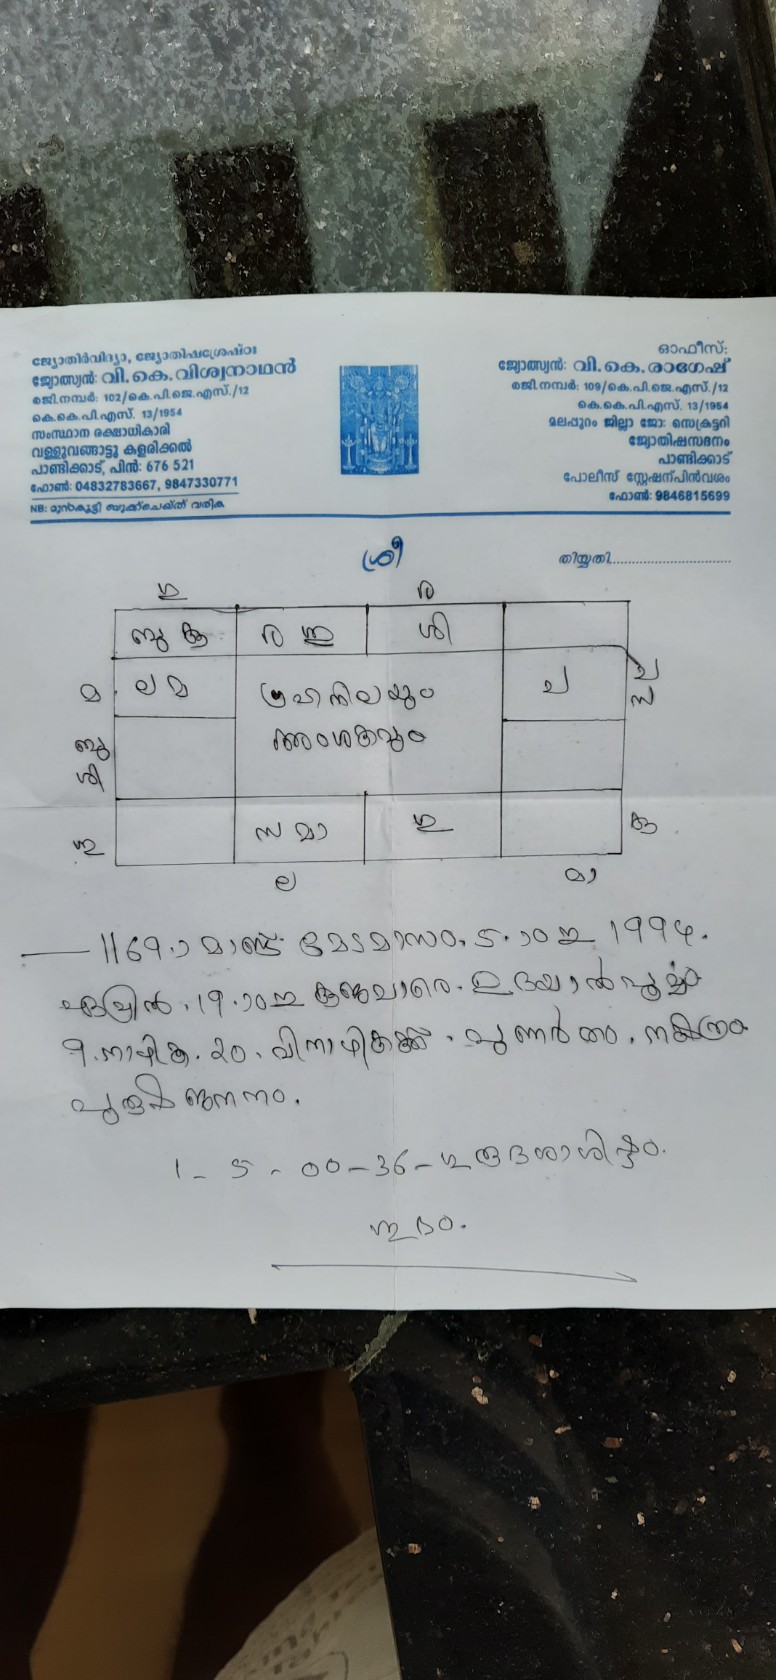 ജ്യോതിർവിദ്യാ, ജ്യോതിഷശ്രേഷ്ഠഃ
ജ്യോത്സ്യൻ: വി.കെ.വിശ്വനാഥൻ
രജി.നമ്പർ: 102/കെ.പി.ജെ.എസ്./12
കെ.കെ.പി.എസ്. 13/1954
സംസ്ഥാന രക്ഷാധികാരി
വള്ളുവങ്ങാട്ടു കളരിക്കൽ
പാണ്ടിക്കാട്, പിൻ: 676 521
ഫോൺ: 04832783667, 9847330771
NB: മുൻകൂട്ടി ബുക്ക്ചെയ്ത് വരിക
ഓഫീസ്:
ജ്യോത്സ്യൻ: വി.കെ.രാഗേഷ്
രജി.നമ്പർ: 109/കെ.പി.ജെ.എസ്./12
കെ.കെ.പി.എസ്. 13/1954
മലപ്പുറം ജില്ലാ ജോ: സെക്രട്ടറി
ജ്യോതിഷസദനം
പാണ്ടിക്കാട്
പോലീസ് സ്റ്റേഷന്പിൻവശം
ഫോൺ: 9846815699
ശ്രീ
തിയ്യതി
ഗു ര
ബു കു ര ശി
മ ല മ ഗ്രഹനിലയും ച ച
സ
ബു അംശകവും
ശി
സ മാ ഗു കു
ല മാ
1169-ാ മാണ്ട് മേടമാസം. 5-ാം 1994.
ഏപ്രിൽ. 19-ാം ഉദയാൽപൂർവ്വം
9. നാഴിക. 20. വിനാഴികക്ക്. പുണർതം. നക്ഷത്രം
ജനനം.
1 - 5 - 00 - 36 - ഗുരുദശാശിഷ്ടം.
ശുഭം.